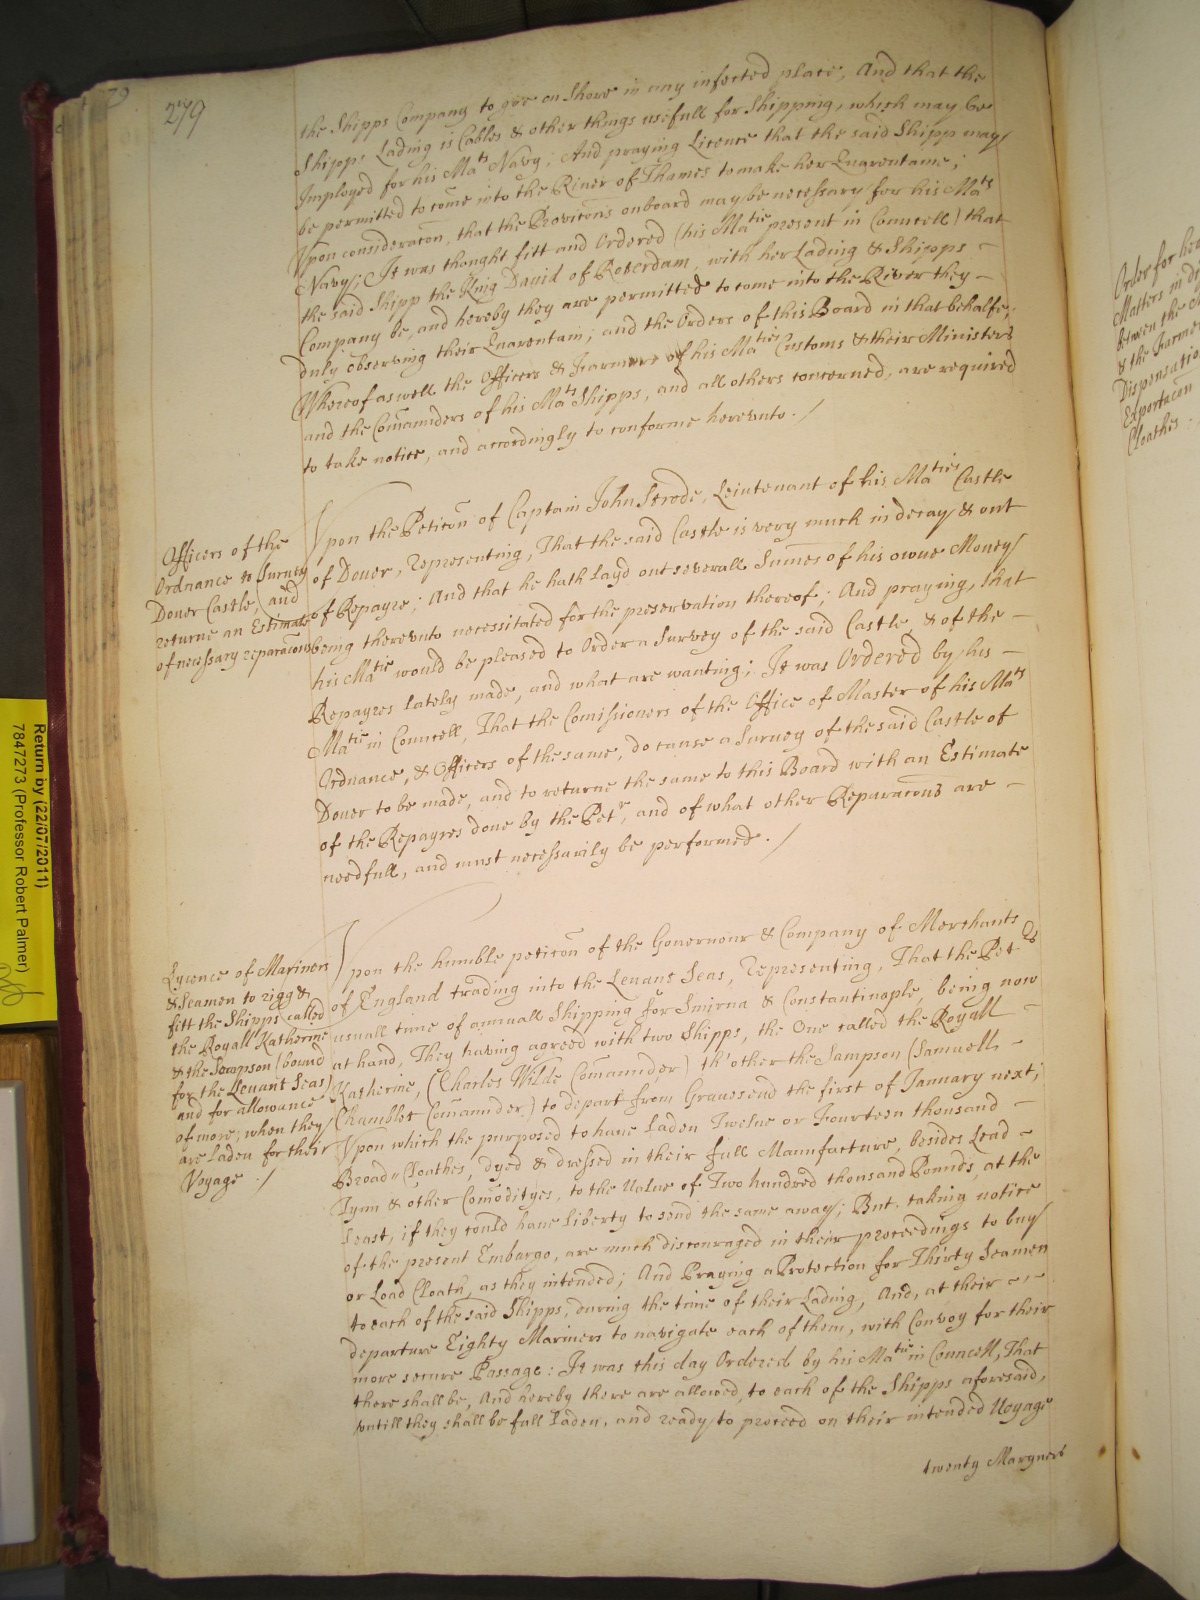 279
the Shipps Company to goe on Shore in any infected place; And that the
Shipps Lading is Cables & other things usefull for Shipping, which may be
Imployed for his Mats Navy; And praying Licence that the said Shipp may
be permitted to come into the River of Thames to make her Quarentaine;
Vpon consideracon, that the Provicons onboard may be necessary for his Mats
Navy; It was thought fitt and Ordered (his Matie present in Councell) that
the said Shipp the King David of Roterdam, with her Lading & Shipps -
Company be, and hereby they are permitted to come into the River they -
duly observing their Quarentain; and the Orders of this Board in that behalfe;
Whereof aswell the Officers & Farmers of his Maties Customs & their Ministers
and the Comanders of his Mats Shipps, and all others concerned, are required
to take notice, and accordingly to conforme herevnto. /
Officers of the
Ordnance to Survey
Dover Castle, and
returne an Estimate
of necessary reparacons
Vpon the Peticon of Captain John Strode, Leiutenant of his Maties Castle
of Dover, Representing, That the said Castle is very much in decay & out
of Repayre; And that he hath Layd out severall Sumes of his owne Money
being therevnto necessitated for the preservation thereof; And praying, that
his Matie would be pleased to Order a Survey of the said Castle & of the -
Repayres lately made, and what are wanting; It was Ordered by his -
Matie in Councell, That the Comissioners of the Office of Master of his Mats
Ordnance, & Officers of the same, do cause a Survey of the said Castle of
Dover to be made, and to returne the same to this Board with an Estimate
of the Repayres done by the Petr, and of what other Reparacons are -
needfull, and must necessarily be performed. /
Lycence of Mariners
& Seamen to rigg &
fitt the Shipps called
the Royall Katherine
& the Sampson (bound
for the Levant Seas)
and for allowance
of more, when they
are Laden for their
Voyage. /
Vpon the humble peticon of the Governour & Company of Merchants
of England trading into the Levant Seas, Representing, That the Petrs
usuall time of annuall Shipping for Smirna & Constantinople, being now
at hand, They having agreed with two Shipps, the One called the Royall -
Katherine, (Charles Wilde Comander) th'other the Sampson (Samuell -
Chamblet Comander) to depart from Gravesend the first of January next;
Vpon which the purposed to have Laden Twelve or Fourteen thousand -
Broad-Cloathes, dyed & dressed in their full Manufacture, besides Lead -
Tynn & other Comodityes, to the Value of Two hundred thousand Pounds, at the
least, if they could have liberty to send the same away; But, taking notice
of the present Embargo, are much discouraged in their proceedings to buy
or Load Cloath, as they intended; And Praying a Protection for Thirty Seamen
to each of the said Shipps, during the time of their Lading, And, at their - -
departure Eighty Mariners to navigate each of them, with Convoy for their
more secure Passage: It was this day Ordered by his Matie in Councell, That
there shall be, And hereby there are allowed, to each of the Shipps aforesaid,
vntill they shall be full Laden, and ready to proceed on their intended Voyage
twenty Maryners
Order for he
Matters in di
between the
& the Farme
Dispensatio
Exportacon
Cloathes
Return by (22/07/2011)
7847273 (Professor Robert Palmer)